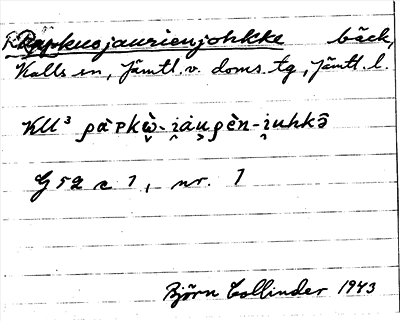 Rapkusjaurienjohkke bäck,
Kalls sn, Jämtl. v. doms. tg, Jämtl. l.
KU³ ρàᴘkὼ̭-i̭ȧṷρèn-i̭uhkə̂
G 52 c 1, nr. 1
Björn Collinder 1943